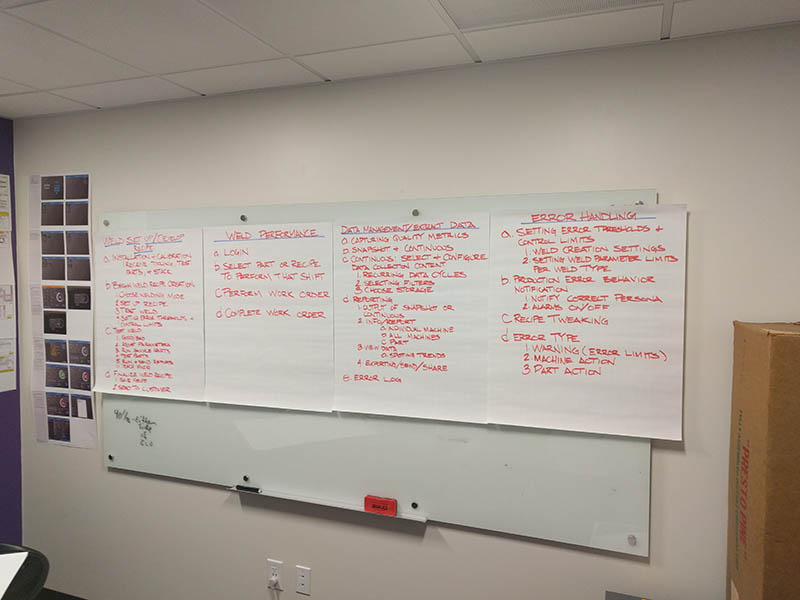 WELD SET UP/DEVELOP
RECIPE
a. INSTALLATION + CALIBRATION
RECEIVE TOOLING, TEST
PARTS, & STACK
b. BEGIN WELD RECIPE CREATION
1. CHOOSE WELDING MODE
2. SET UP RECIPE
3. TEST WELD
4. SET UP ERROR THRESHOLDS &
CONTROL LIMITS
C. TEST WELD
2. ADJUST PARAMETERS
3. RUN SAMPLE PARTS
4. TEST PARTS
d. FINALIZE WELD RECIPE
1. SAVE RECIPE
2. SEND TO CUSTOMER
WELD PERFORMANCE
a. LOGIN
b. SELECT PART OR RECIPE
TO PERFORM THAT SHIFT
C. PERFORM WORK ORDER
d. COMPLETE WORK ORDER
DATA MANAGEMENT/EXTRACT DATA
a. CAPTURING QUALITY METRICS
b. SNAPSHOT & CONTINUOUS
C. CONTINUOUS: SELECT & CONFIGURE
DATA COLLECTION CONTENT
1. RECURRING DATA CYCLES
2. SELECTING FILTERS
3. CHOOSE STORAGE
d. REPORTING
1. OUTPUT OF SNAPSHOT OR
CONTINUOUS
2. INFO/REPORT
a. INDIVIDUAL MACHINE
b. ALL MACHINES
C. PART
3. VIEW DATA
a. SPOTTING TRENDS
4. EXPORTING/SEND/SHARE
e. ERROR LOG
ERROR HANDLING
a. SETTING ERROR THRESHOLDS &
CONTROL LIMITS
1. WELD CREATION SETTINGS
2. SETTING WELD PARAMETER LIMITS
PER WELD TYPE
b. PRODUCTION ERROR BEHAVIOR
NOTIFICATION
1. NOTIFY CORRECT PERSONA
2. ALARMS ON/OFF
C. RECIPE TWEAKING
d. ERROR TYPE
1. WARNING (ERROR LIMITS)
2. MACHINE ACTION
3. PART ACTION
"PRESTO PINE"